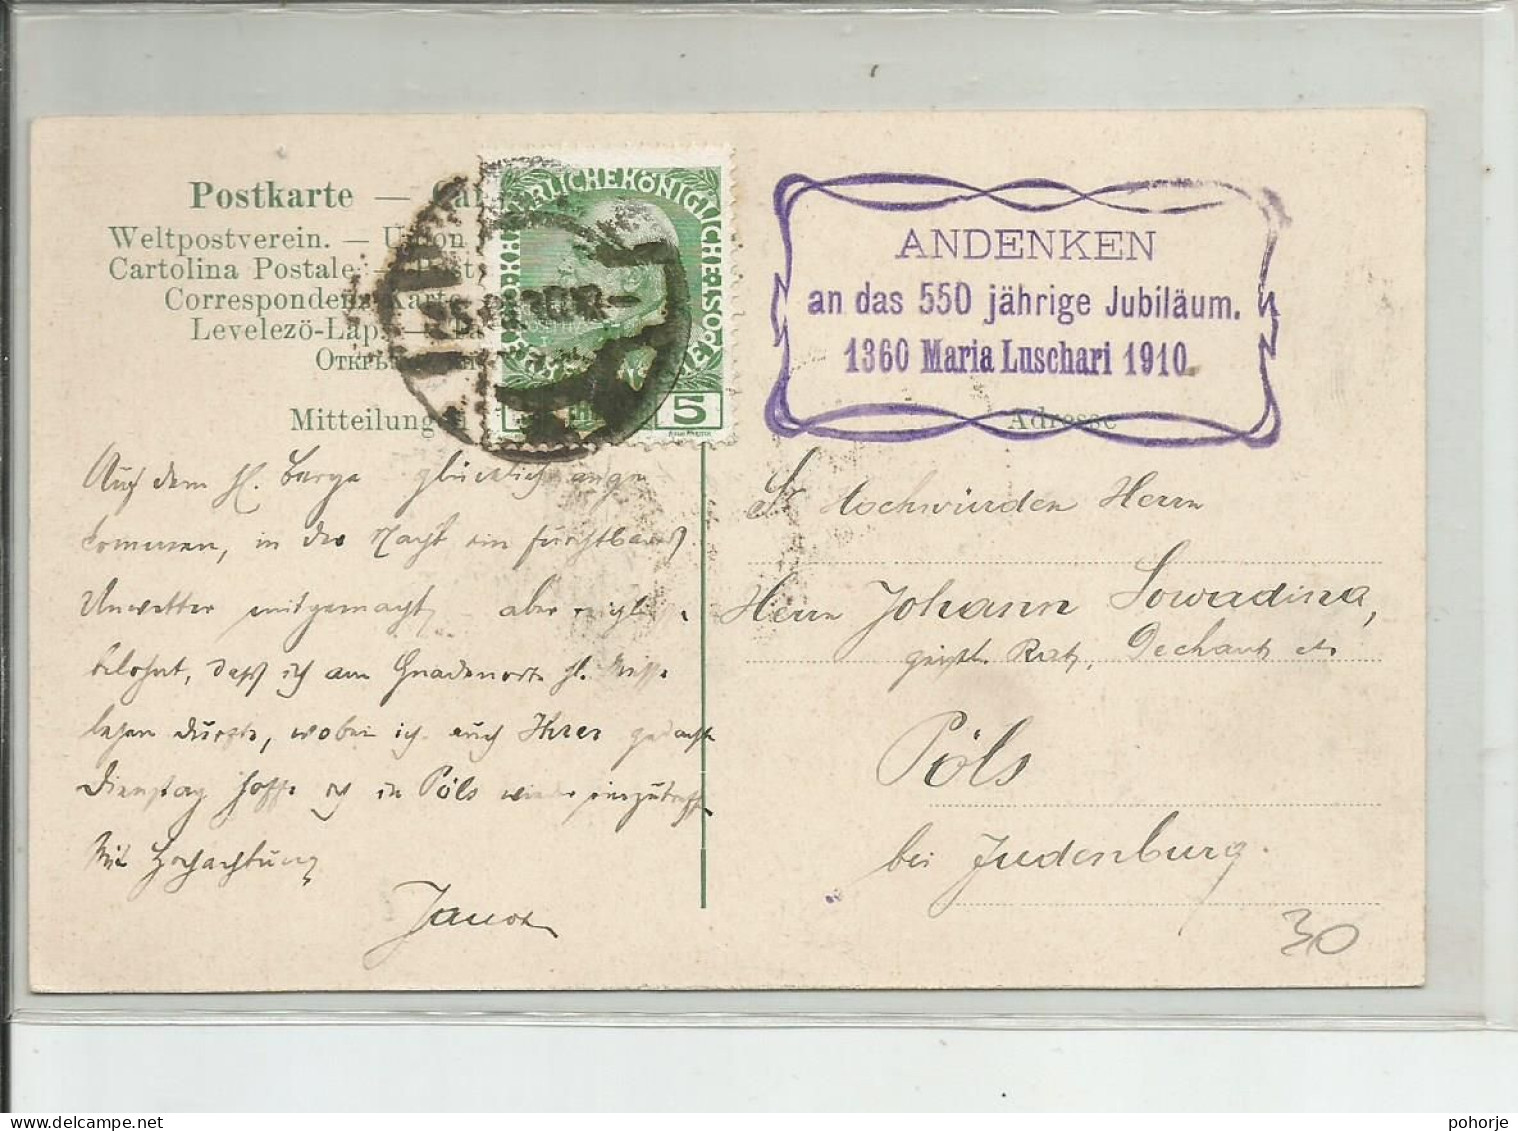 Postkarte —
Weltpostverein. — Union
Cartolina Postale —
Correspondenz-Karte
Levelezö-Lap.
Mitteilungen
KAISERLICHE KÖNIGLICHE ÖSTERREICHISCHE POST
5
ANDENKEN
an das 550 jährige Jubiläum.
1360 Maria Luschari 1910.
Adresse
Auf dem hl. Berge glücklich ange
kommen, in der Nacht ein furchtbares
Unwetter mitgemacht, aber
belohnt, daß ich am Gnadenorte hl. Messe
lesen durfte, wobei ich auch Ihrer gedachte
Dienstag hoffe ich in Pöls wieder einzutreffen
Mit Hochachtung
Sr Hochwürden Herrn
Herrn Johann Sowadina,
geistl. Rat, Dechant etc
Pöls
bei Judenburg.
30
pohorje